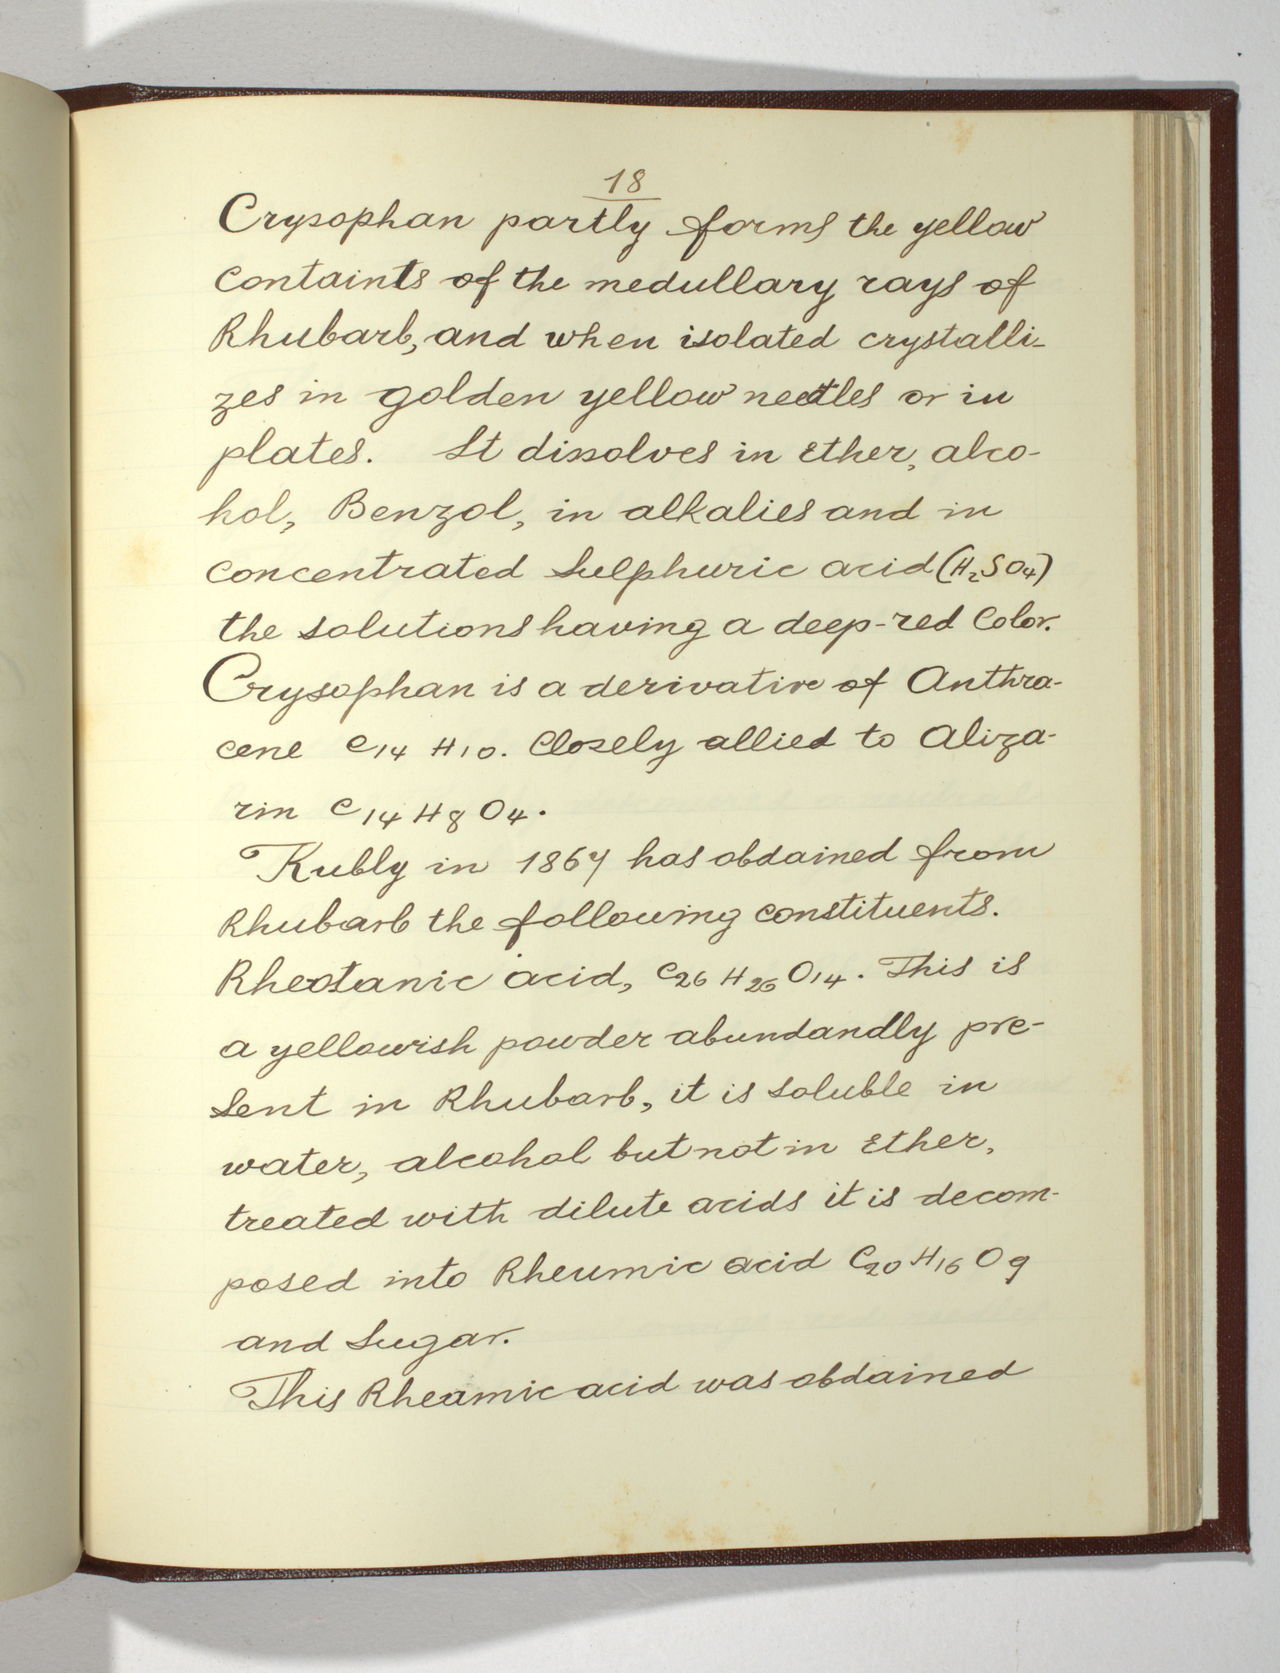 18
Crysophan partly forms the yellow
containts of the medullary rays of
Rhubarb, and when isolated crystalli-
zes in golden yellow needles or in
plates. It dissolves in Ether, alco-
hol, Benzol, in alkalies and in
concentrated Sulphuric acid (H2SO4)
the solutions having a deep-red Color.
Crysophan is a derivative of Anthra-
cene C14 H10. Closely allied to Aliza-
rin C14 H8 O4.
Kubly in 1867 has obdained from
Rhubarb the following constituents.
Rheotanic acid, C26 H26 O14. This is
a yellowish powder abundandly pre-
sent in Rhubarb, it is soluble in
water, alcohol but not in Ether,
treated with dilute acids it is decom-
posed into Rheumic acid C20 H16 O9
and Sugar.
This Rheamic acid was obdained